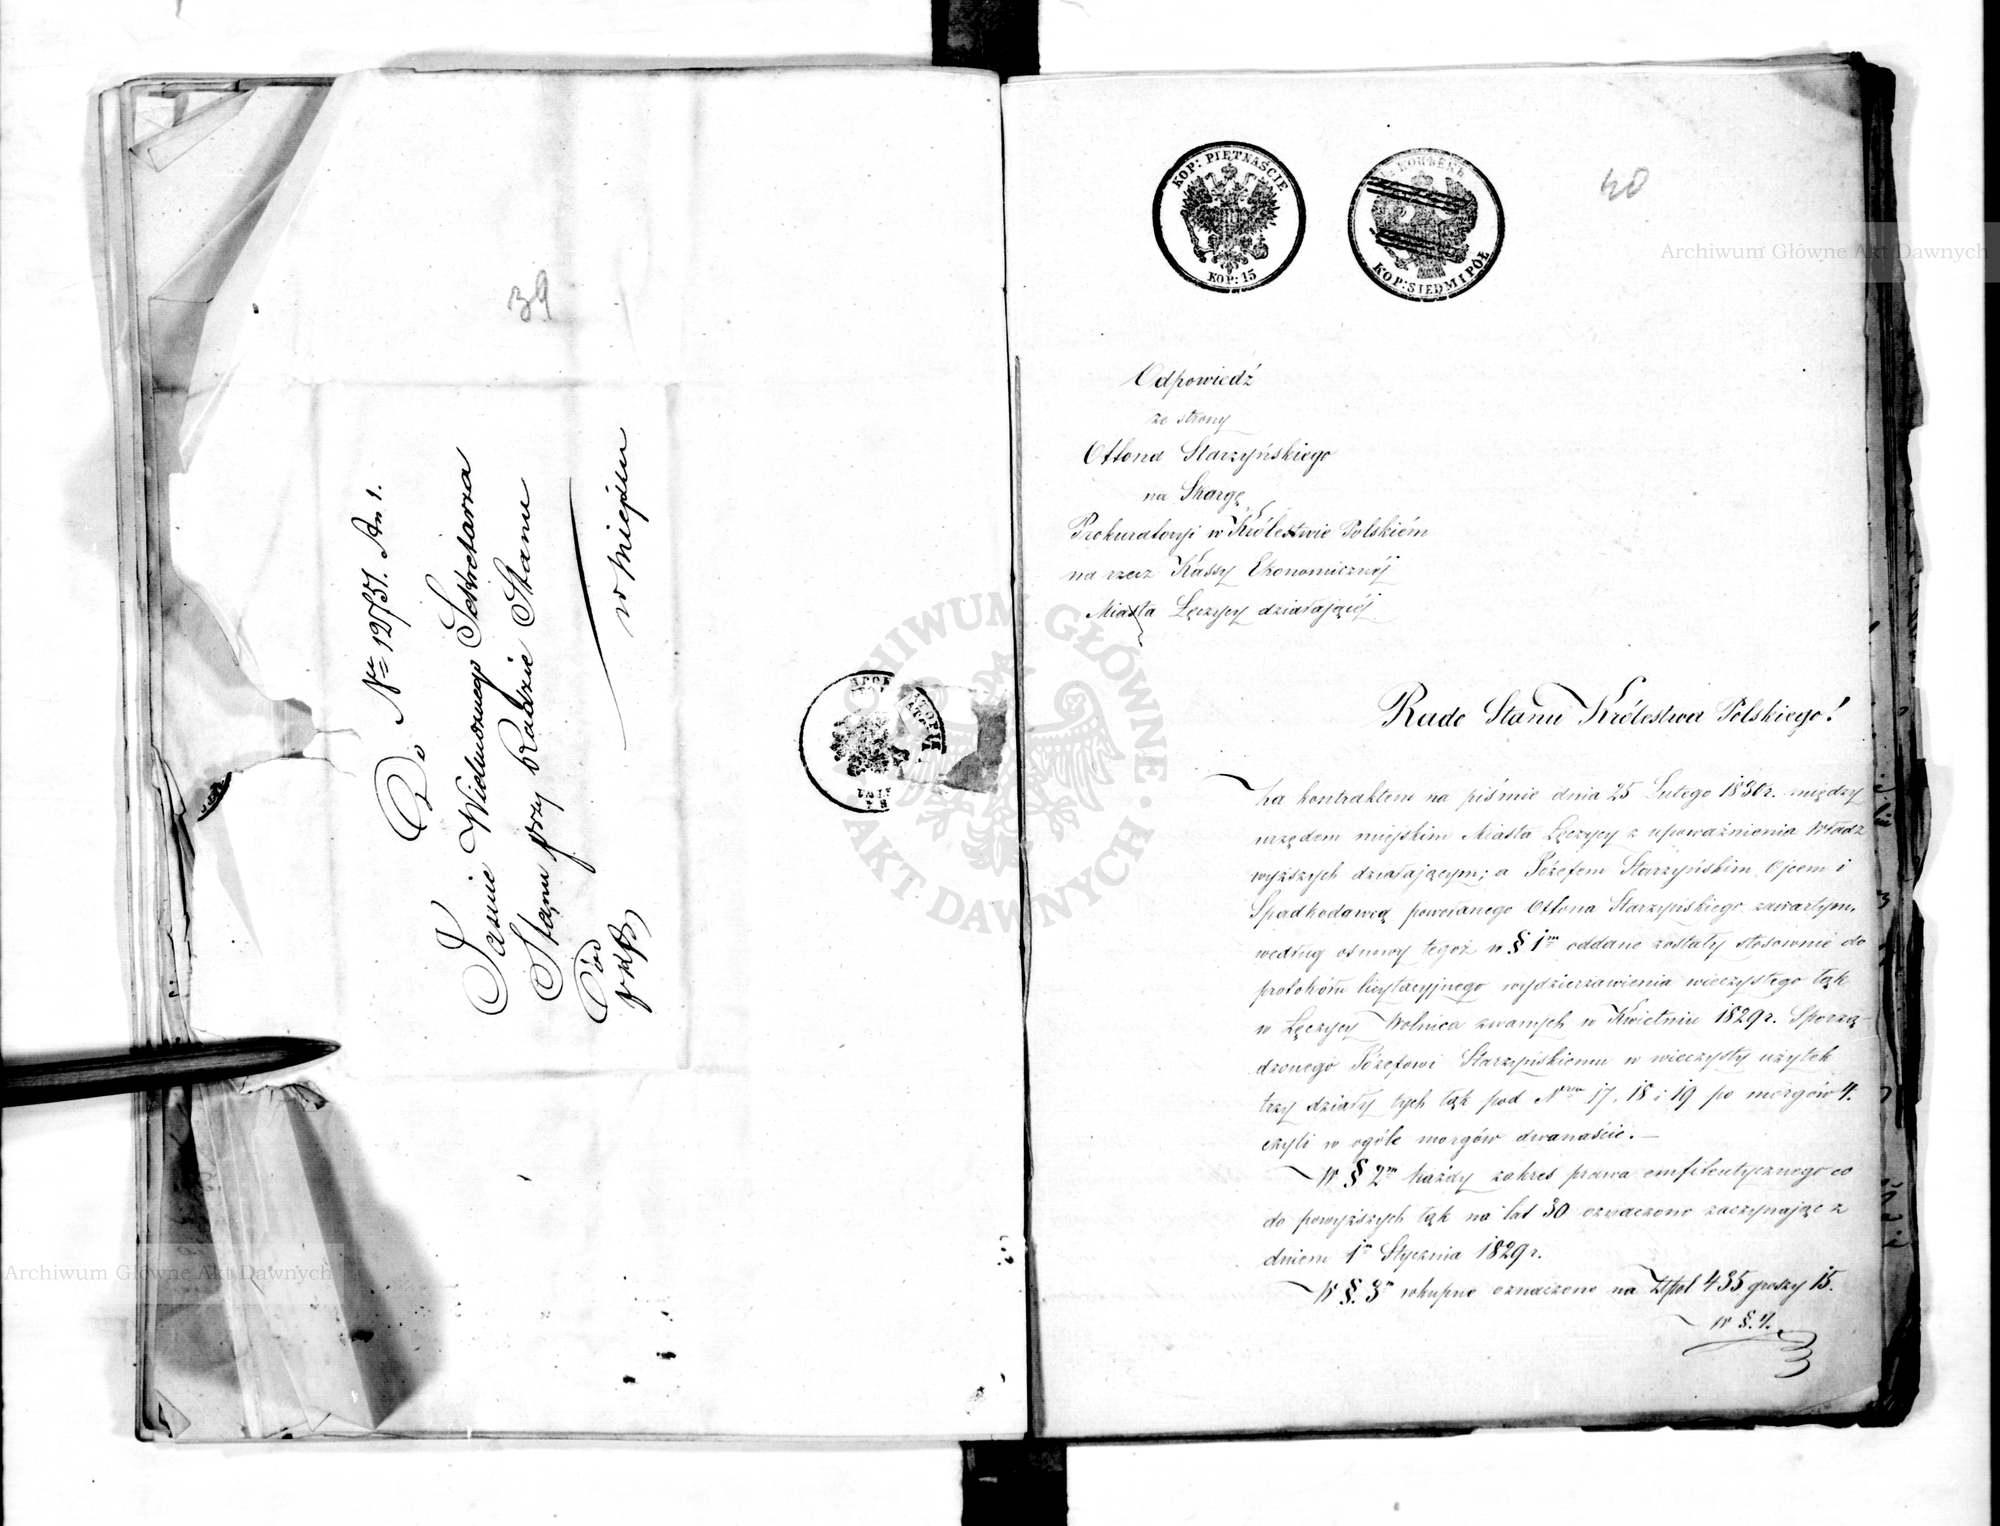 39
Nr 12751. Stn 1.
Do
Jaśnie Wielmożnego Sekretarza
Stanu przy Radzie Stanu
w Miejscu
KOP: PIĘTNAŚCIE
KOP: 15
КОПѢЕКЪ
KOP: SIEDM I PÓŁ
40
Odpowiedź
ze strony
Ottona Starzyńskiego
na Skargę
Prokuratoryi w Królestwie Polskiém
na rzecz Kassy Ekonomicznéj
Miasta Łęczycy działającéj
Rado Stanu Królestwa Polskiego!
Za kontraktem na piśmie dnia 25 Lutego 1830 r. między
urzędem miejskim Miasta Łęczycy z upoważnienia Władz
wyższych działającym; a Józefem Starzyńskim Ojcem i
Spadkodawcą powołanego Ottona Starzyńskiego zawartym,
według osnowy tegoż w § 1m oddane zostały stosownie do
protokółu licytacyjnego wydzierzawienia wieczystego łąk
w Łęczycy Wolnica zwanych w Kwietniu 1829 r. Sporzą-
dzonego Józefowi Starzyńskiemu w wieczysty użytek
trzy działy tych łąk pod Nrem 17, 18 i 19 po morgów 4.
czyli w ogóle morgów dwanaście. —
W § 2m każdy zakres prawa emfiteutycznego co
do powyższych łąk na lat 30 oznaczono zaczynając z
dniem 1m Stycznia 1829 r.
W §. 3m wkupno oznaczono na Złpol 435 groszy 15.
W §. 4.
Archiwum Główne Akt Dawnych
Archiwum Główne Akt Dawnych
ARCHIWUM GŁÓWNE AKT DAWNYCH